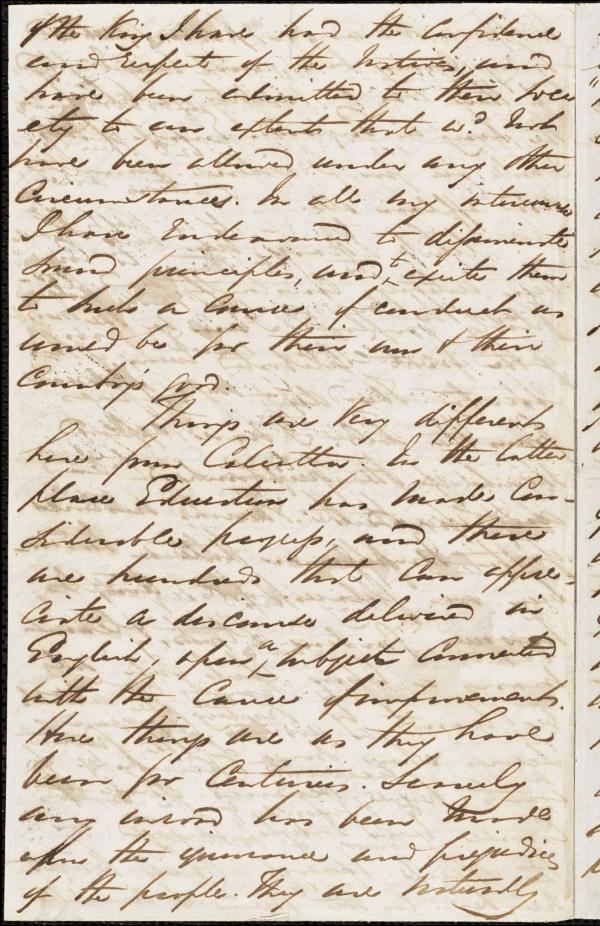 of the King I have had the confidence
and respect of the Natives, and
have been admitted to their soci
ety to an extent that wd. not
have been allowed under any other
circumstances. In all my intercourse
I have endeavoured to disseminate
sound principles, and to excite them
to such a course of conduct as
would be for their own & their
Country's good.
Things are very different
here from Calcutta. In the latter
place Education has made con-
siderable progress, and there
are hundreds that can appre-
ciate a discourse delivered in
English, upon a subject connected
with the cause of improvement.
Here things are as they have
been for Centuries. Scarcely
any inroad has been made
upon the ignorance and prejudices
of the people. They are naturally